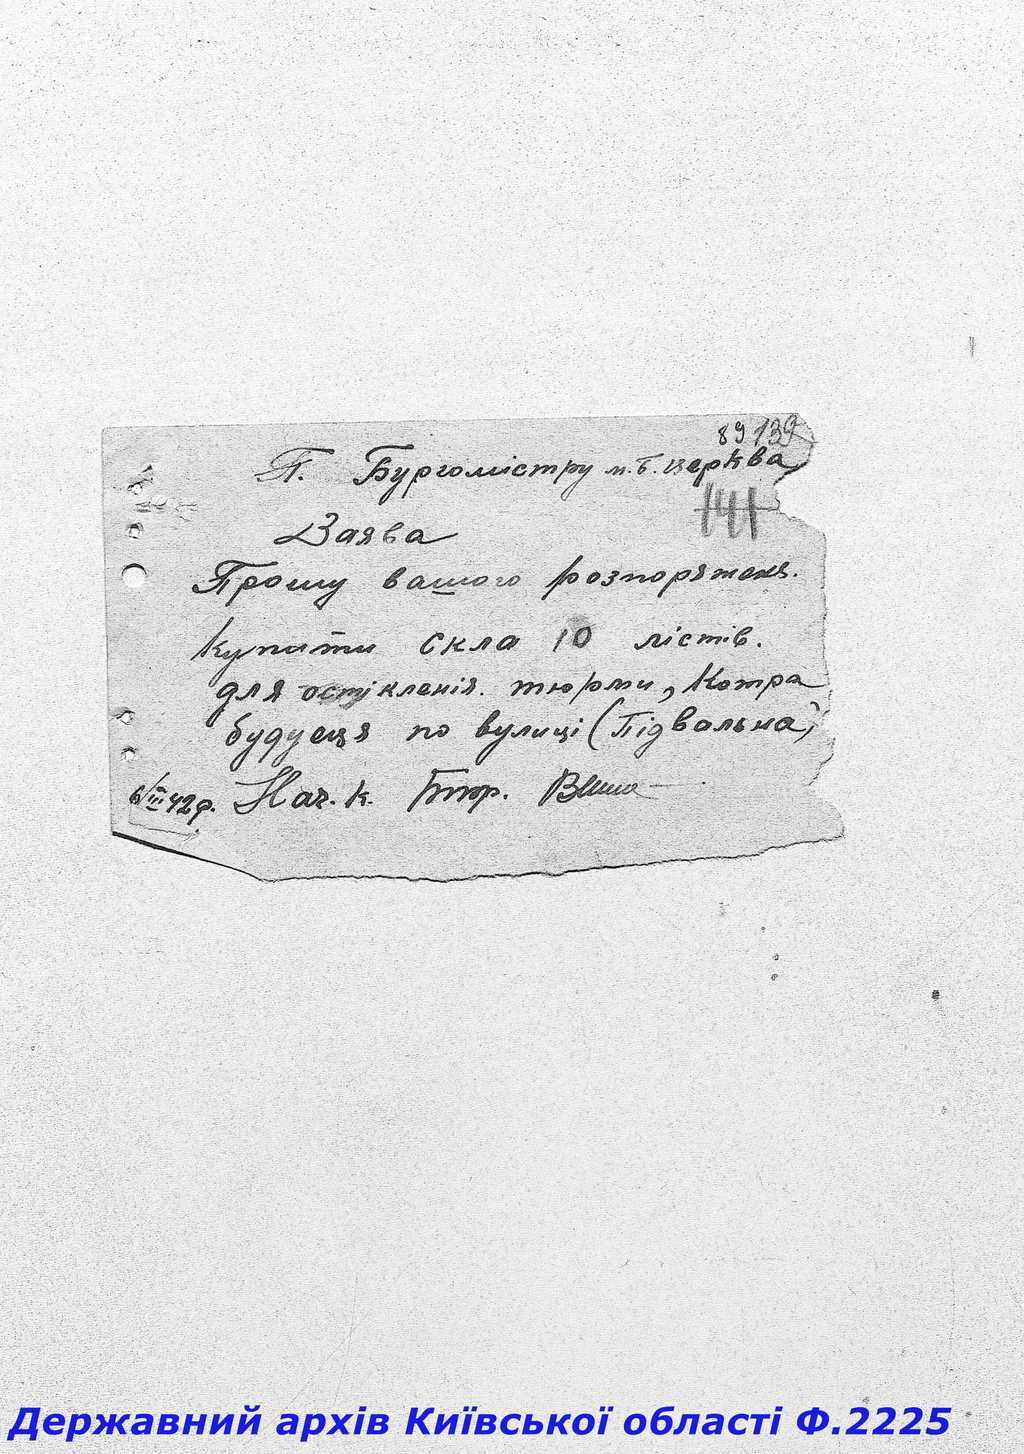 89 139
П. Бургомістру м. Б. церква
141
Заява
Прошу вашого розпоряженя.
Купити скла 10 лістів.
для остікленія. тюрми, Котра
будуеця по вулиці (Підвальна)
6/III 42 р. Нач. к. Тюр.
Державний архів Київської області Ф.2225